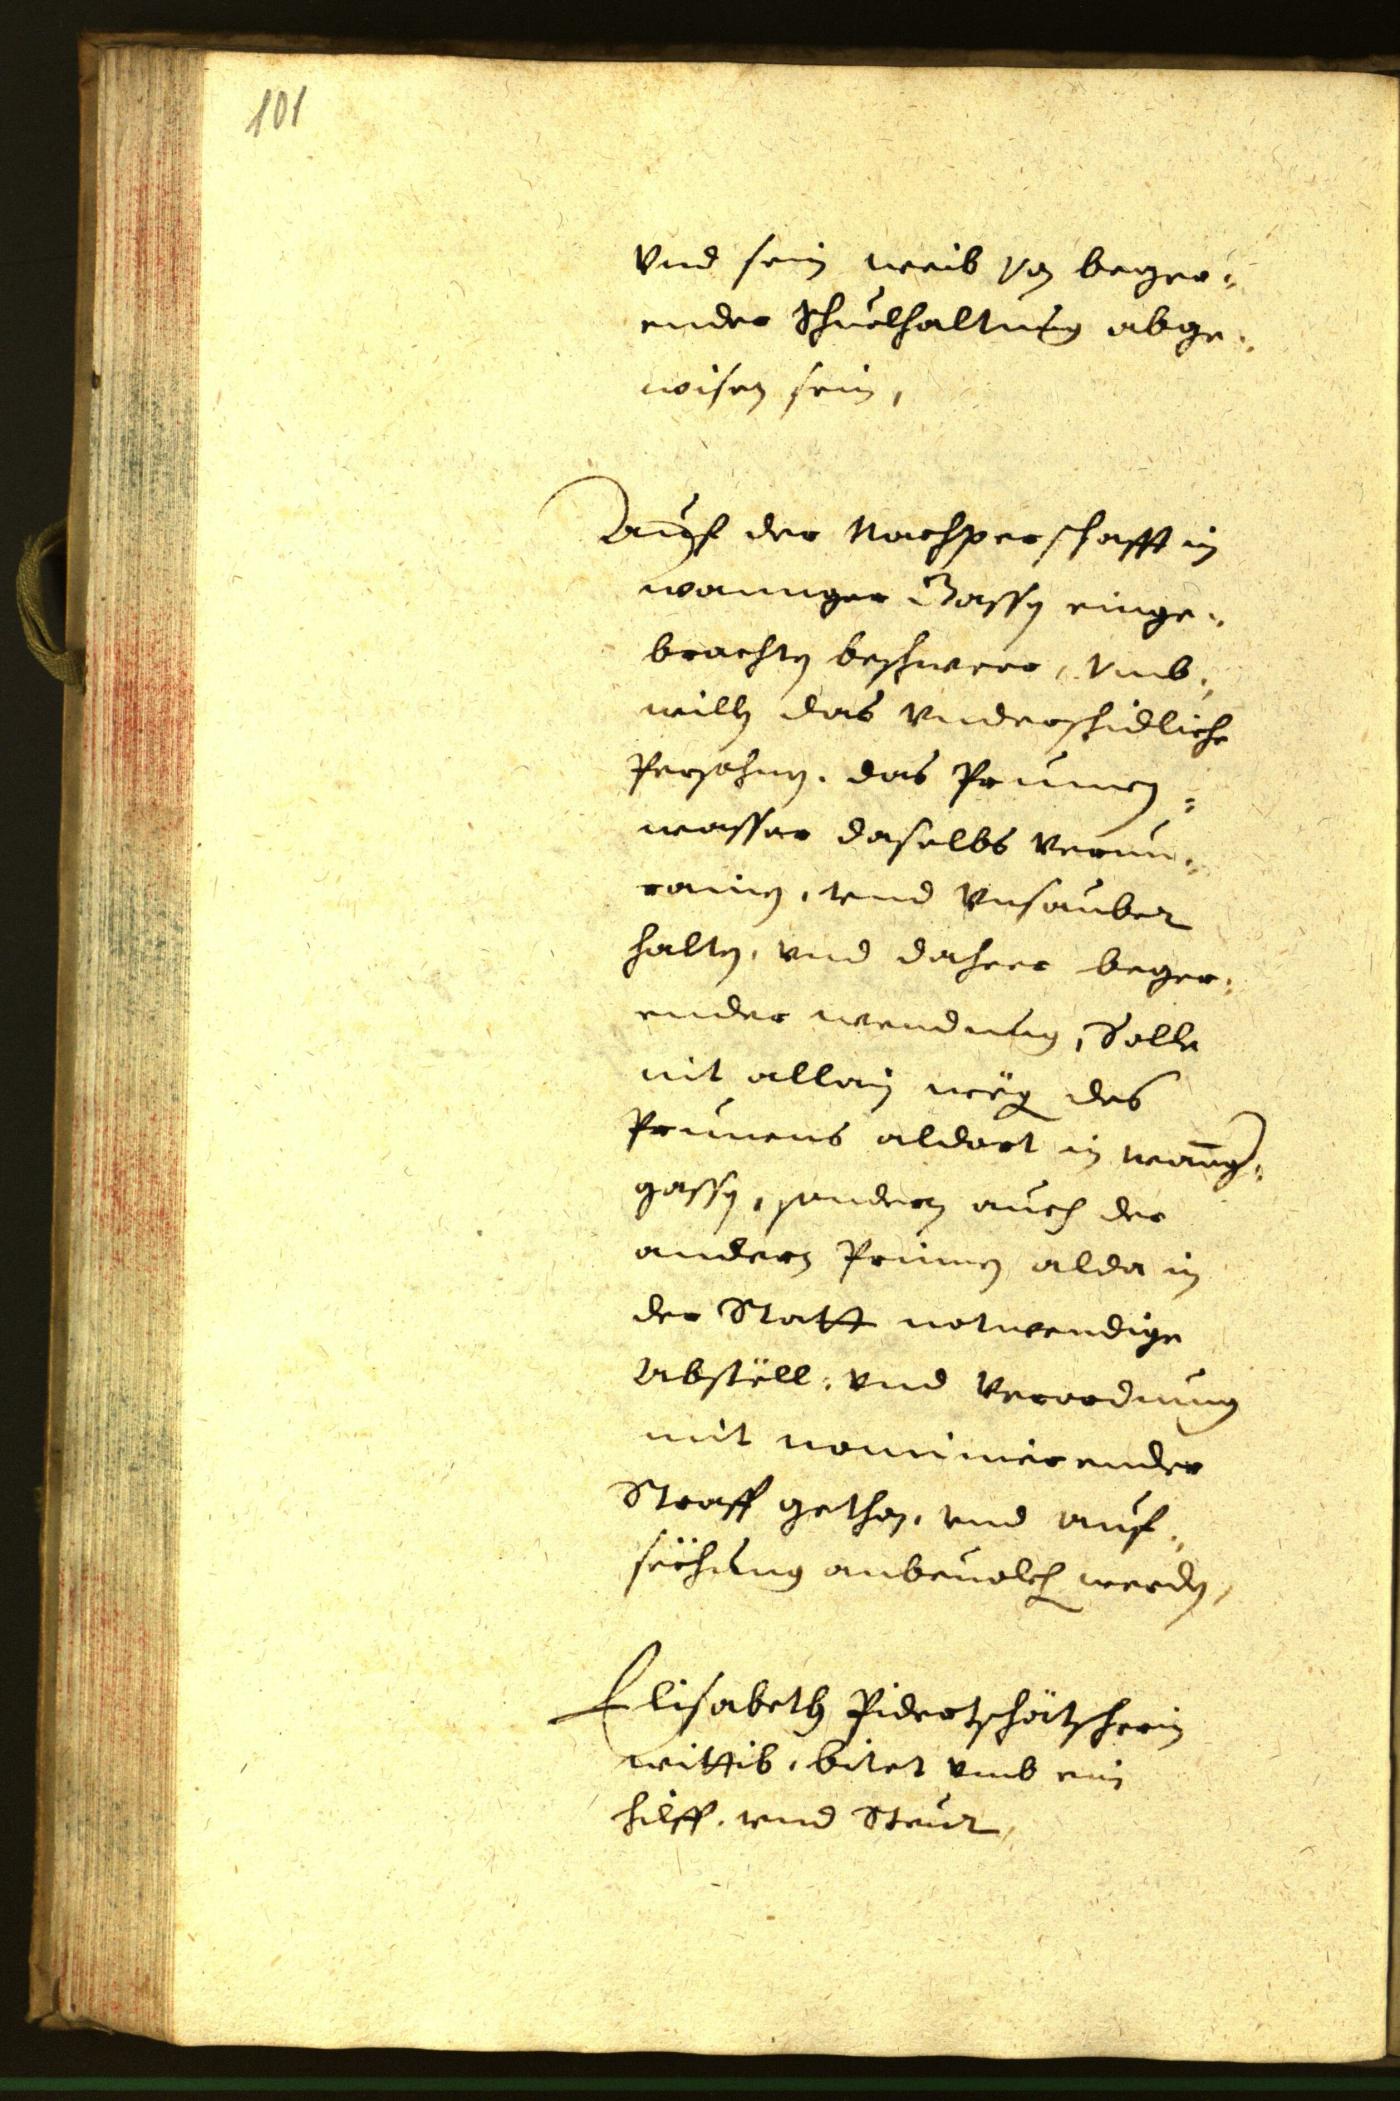 101
Vnd sein weib von beger¬
ender Schuelhaltung abge¬
wisen sein,
Auf der Nachperschafft in
wannger Gassen einge¬
brachten beschwer, vmb¬
willen das vnderschidliche
Persohnen, das Prunnen¬
wasser daselbs verun¬
rainen, vnd vnsauber
halten, vnd daherr beger¬
ender wendung, Solle
nit allain wëgen des
Prunens aldort in wanng¬
gassen, sondern auch der
andern Prünnen alda in
der Statt notwendige
Abstëll: vnd Verordnung
mit nominierender
Straff gethon, vnd auf¬
sëchung anbeuolchen werden,
Elisabeth Pidertschätscherin
wittib, bitet vmb ein
hilff, vnd Steur,